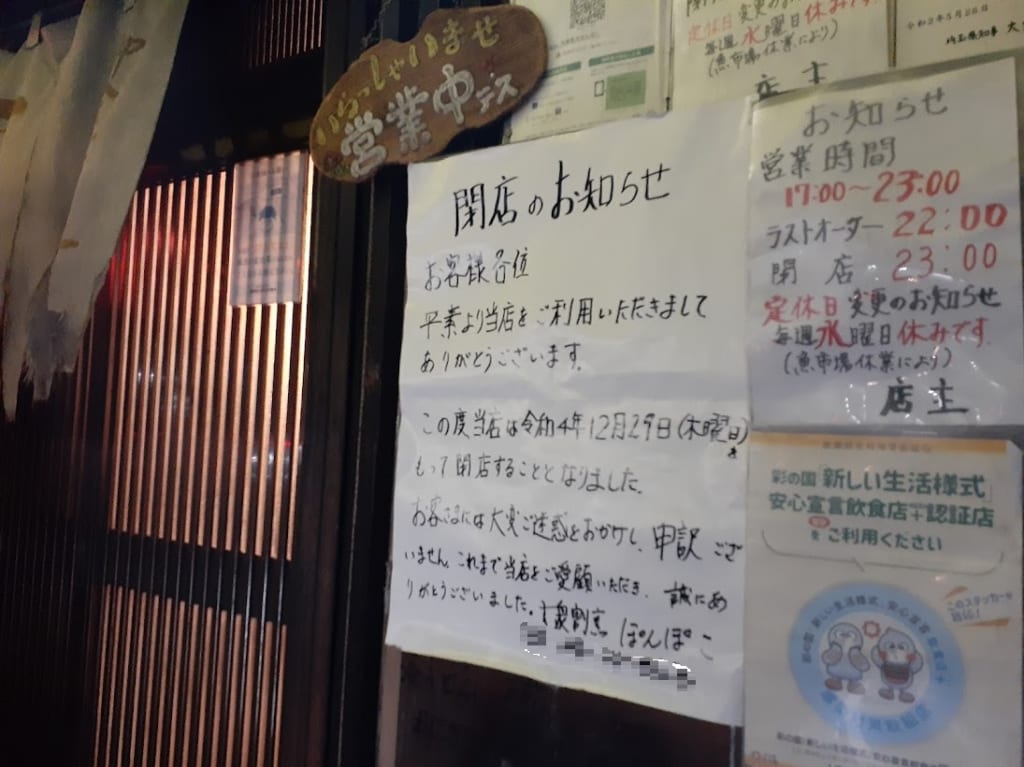 いらっしゃいませ
営業中デス
閉店のお知らせ
お客様各位
平素より当店をご利用いただきまして
ありがとうございます。
この度当店は令和4年12月29日(木曜日)を
もって閉店することとなりました。
お客さまには大変ご迷惑をおかけし、申訳ござ
いません。これまで当店をご愛顧いただき、誠にあ
りがとうございました。大衆割烹 ぽんぽこ
定休日変更のお
毎週水曜日休みです。
(魚市場休業により)
店主
令和2年5月26日
埼玉県知事 大
お知らせ
営業時間
17:00〜23:00
ラストオーダー 22:00
閉店 23:00
定休日変更のお知らせ
毎週水曜日休みです。
(魚市場休業により)
店主
彩の国「新しい生活様式」
安心宣言飲食店+認証店
をご利用ください
このステッカーが
目印!
彩の国「新しい生活様式」安心宣言飲食店+